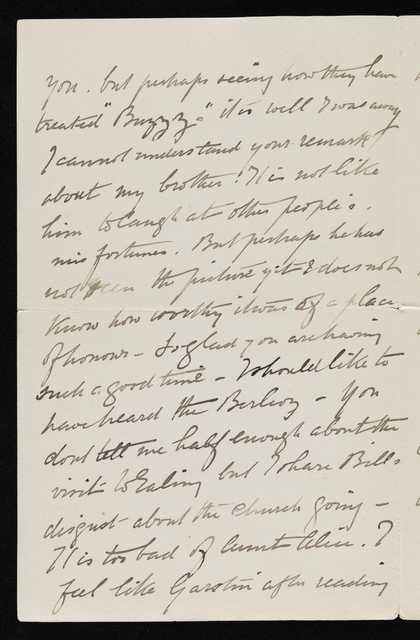 you. but perhaps seeing how they have
treated "Buzzy." it is well I was away
I cannot understand your remark
about my brother! It is not like
him to laugh at other people's.
mis fortunes. But perhaps he has
not seen the picture yet & does not
know how worthy it was of a place
of honour - So glad you are having
such a good time - I should like to
have heard the Berlioz - You
dont tell me half enough about the
visit to Ealing but I share Bills
disgust about the church going -
It is too bad of Aunt Alice. I
feel like after reading